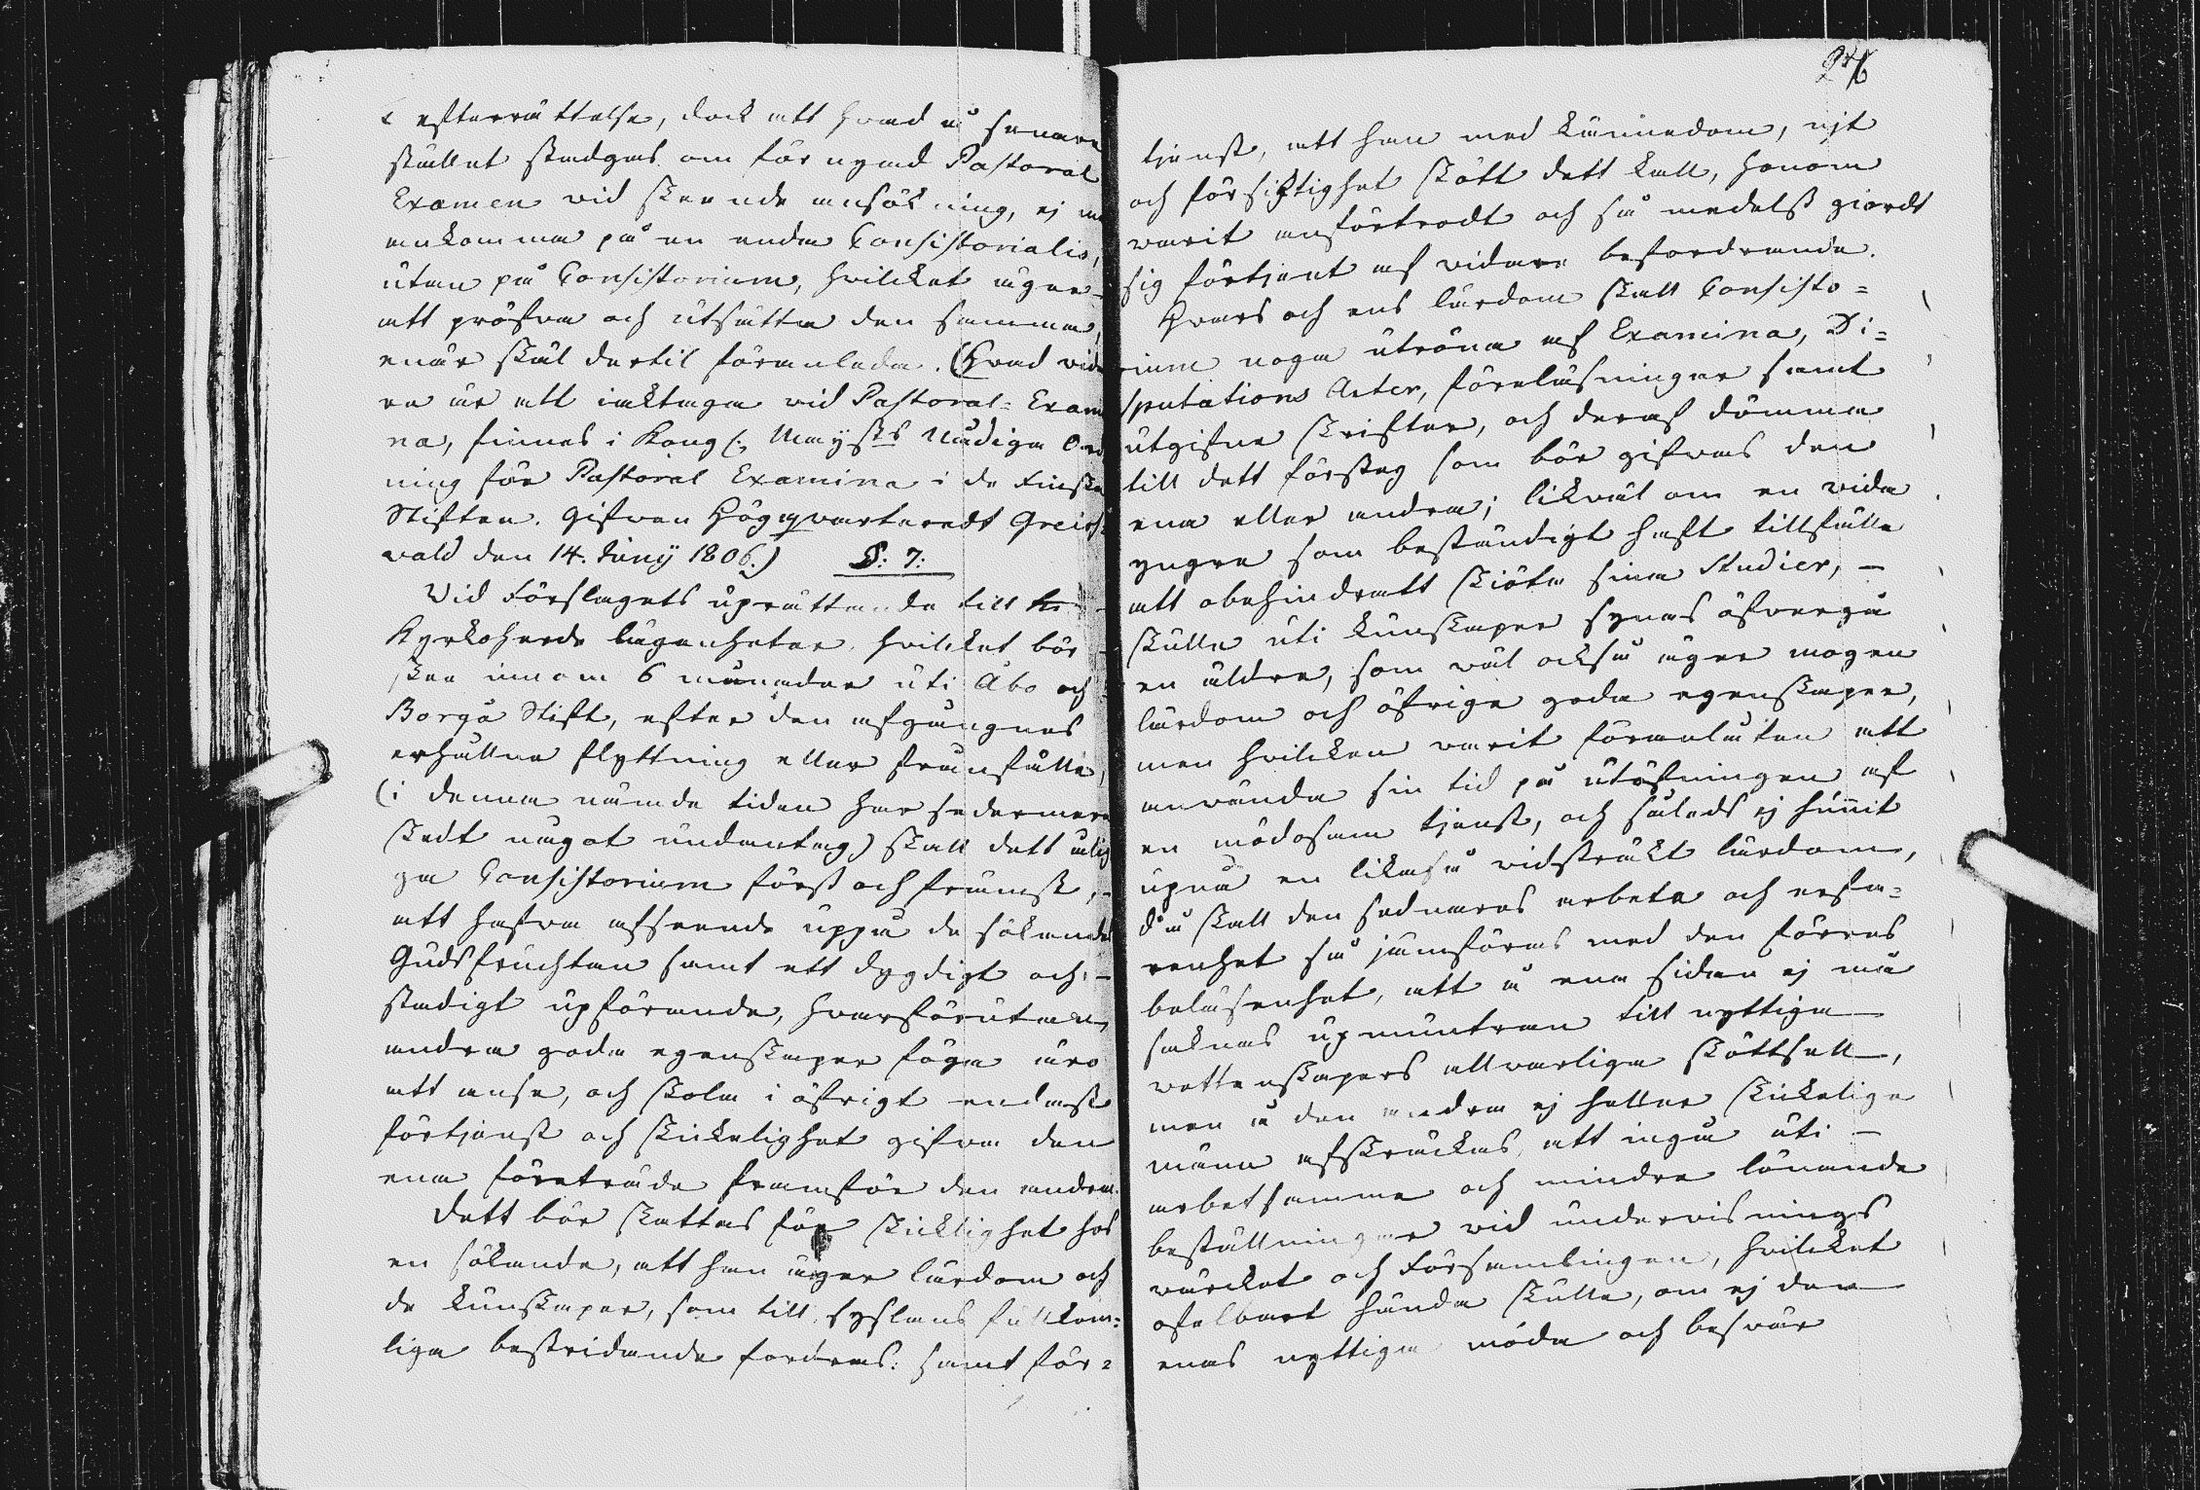 efterrättelse, dock att hvad å senare
stället stadgas om för nyad Pastoral
Examen vid skeende ansökning, ej må
ankomma på en enda Consistorialis,
utan på Consistorium, hvilket äger
att pröfva och utsätta den samma,
enär skäl dertil föranleda. (Hvad vida
re är att iakttaga vid Pastoral-Exami
na, finnes i Kongl. Maijsts Nådiga Ord
ning för Pastoral Examina i de Finska
Stiften. Gifven Högqvarteredt Greifs
vald den 14. Junij 1806.) §: 7:
Vid Förslagets uprättande till
Kyrkoherde lägenheter, hvilcket bör
ske innom 6 månader uti Åbo och
Borgå Stift, efter den afgångnes
erhållne flyttning eller frånfälle,
(i denna nämde tiden har sedermera
skedt något undantag) skall dett ålig
ga Consistorium först och främst,
att hafva afseende uppå de sökandes
Gudsfruchtan samt ett dygdigt och
stadigt upförande, hvarförutan
andra goda egenskaper föga äro
att anse, och skola i öfrigt endast
förtjenst och skickelighet gifva den
ena företräde framför den andra.
Dett bör skattas för skicklighet hos
en sökande, att han äger lärdom och
de kunskaper, som till sysslans fullkom=
liga bestridande fordras: samt för=
246
tjenst, att han med kännedom, nit
och försigtighet skött dett kall, honom
varit anförtrodt och så medelst giordt
sig förtjent af vidare befordrande.
Hvars och ens lärdom skall Consisto=
rium noga utröna af Examina, Di=
sputations Acter, föreläsningar samt
utgifne skrifter, och deraf dömma
till dett försteg som bör gifvas den
ena eller andra; likväl om en vida
yngre som beständigt haft tillfälle
att obehindradt skiöta sina Studier, —
skulle uti kunskaper synas öfvergå
en äldre, som väl också äger mogen
lärdom och öfrige goda egenskaper,
men hvilcken varit föranlåten att
använda sin tid på utöfningen af
en mödosam tjenst, och således ej hunnit
upnå en likaså vidsträckt lärdom,
då skall den sednares arbete och erfa=
renhet så jämföras med den förres
beläsenhet, att å ena sidan ej må
saknas upmuntran till nyttiga
vettenskapers allvarliga sköttsell,
men å den andra ej heller skickelige
männ afskräckas, att ingå uti —
arbetsamma och mindre lönande
beställningar vid undervisnings
värcket och Församlingen, hvilcket
ofelbart hända skulle, om ej den
enas nyttiga möda och besvär